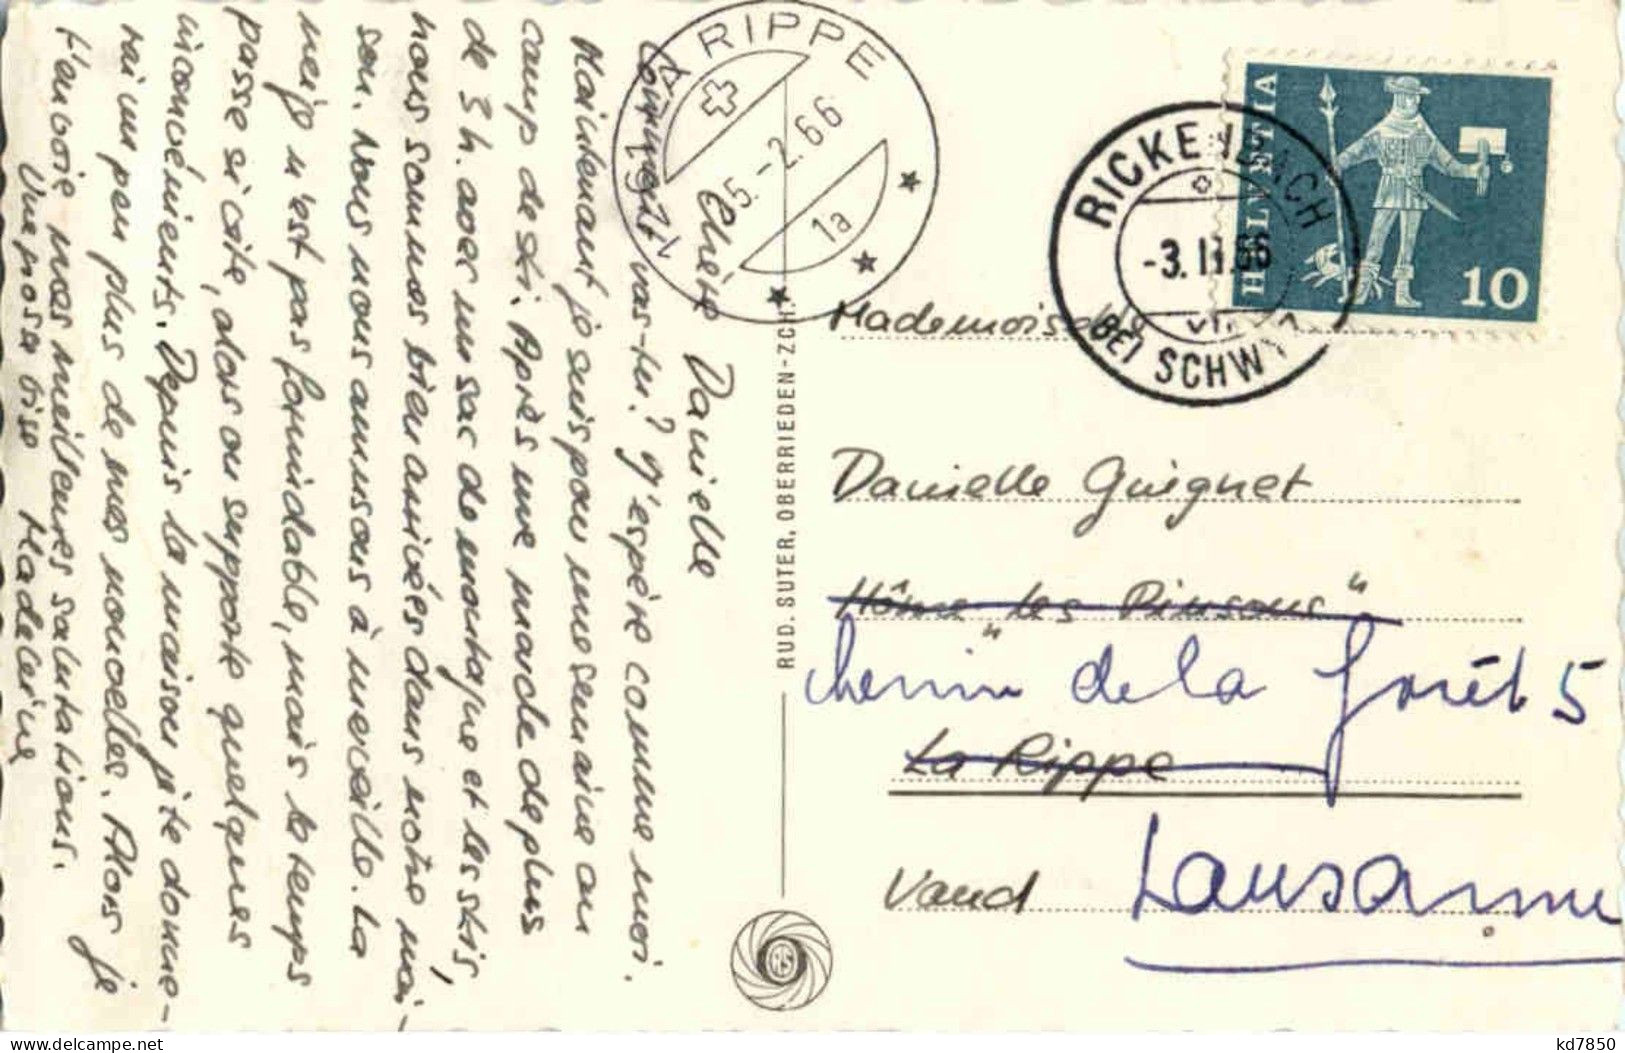 Chère Danielle
Comment vas-tu? J'espère comme moi.
Maintenant je suis pour une semaine au
camp de ski. Après une marche de plus
de 3 h. avec un sac de montagne et les skis,
nous sommes bien arrivées dans notre mai-
son. Nous nous amusons à merveille. La
neige n'est pas formidable, mais le temps
passe si vite, alors on supporte quelques
inconvénients. Depuis la maison je te donne-
rai un peu plus de mes nouvelles. Alors je
t'envoie mes meilleures salutations.
Une grosse bise Madeleine
1261 LA RIPPE
-5.-2.66
1a
RUD. SUTER, OBERRIEDEN-ZCH.
RS
RICKENBACH
-3.II.66
BEI SCHWYZ
HELVETIA
10
Mademoiselle
Danielle Guignet
Hôme "les Pinsons"
Chemin de la Forêt 5
La Rippe
Vaud
Lausanne
kd7850